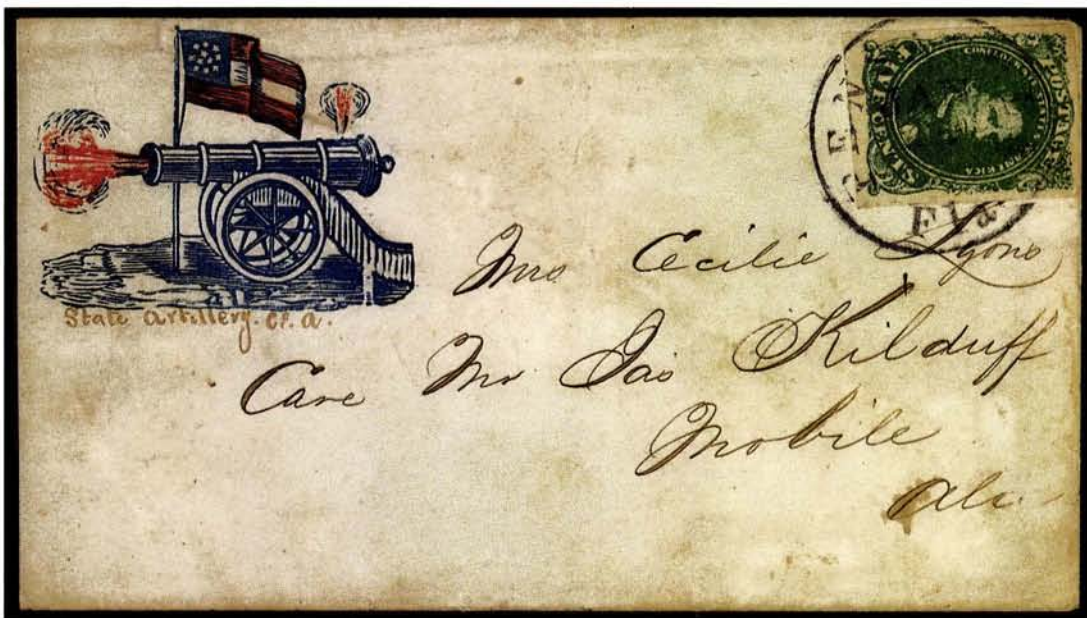 State Artillery. C. S. A.
CONFEDERATE STATES AMERICA
POSTAGE
FIVE CENTS
PEN
FLA
Mrs Cecilie Lyons
Care Mr Jas Kilduff
Mobile
Ala